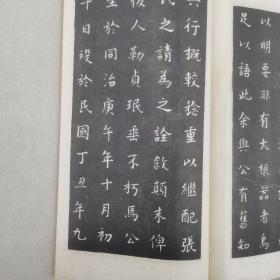 以明要非有大根器者烏
足以語此余與公有舊知
其行概較稔重以繼配張
氏之請為之詮敘顛末俾
後人勒貞珉垂不朽馬公
生於同治庚午年十月初
日歿於民國丁丑年九